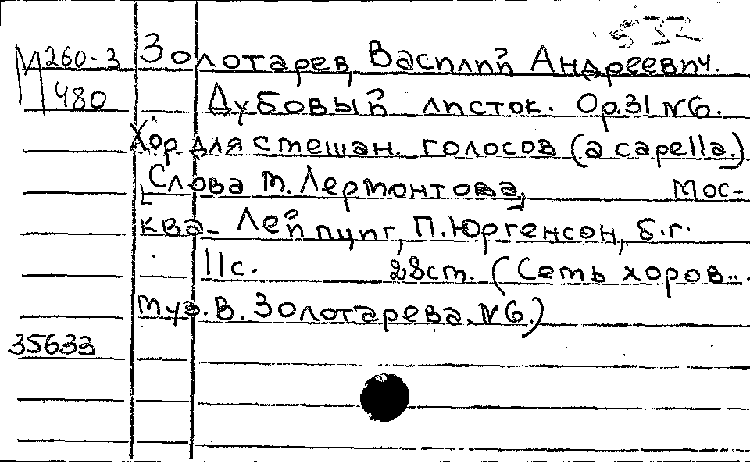 532
М260-3 Золотарев, Василий Андреевич.
480 Дубовый листок. Op.31 №6.
Хор для смешан. голосов (a capella.)
[Слова М. Лермонтова] Мос-
ква- Лейпциг, П. Юргенсон, б.г.
11с. 28см. (Семь хоров...
муз. В. Золотарева. №6.)
35633